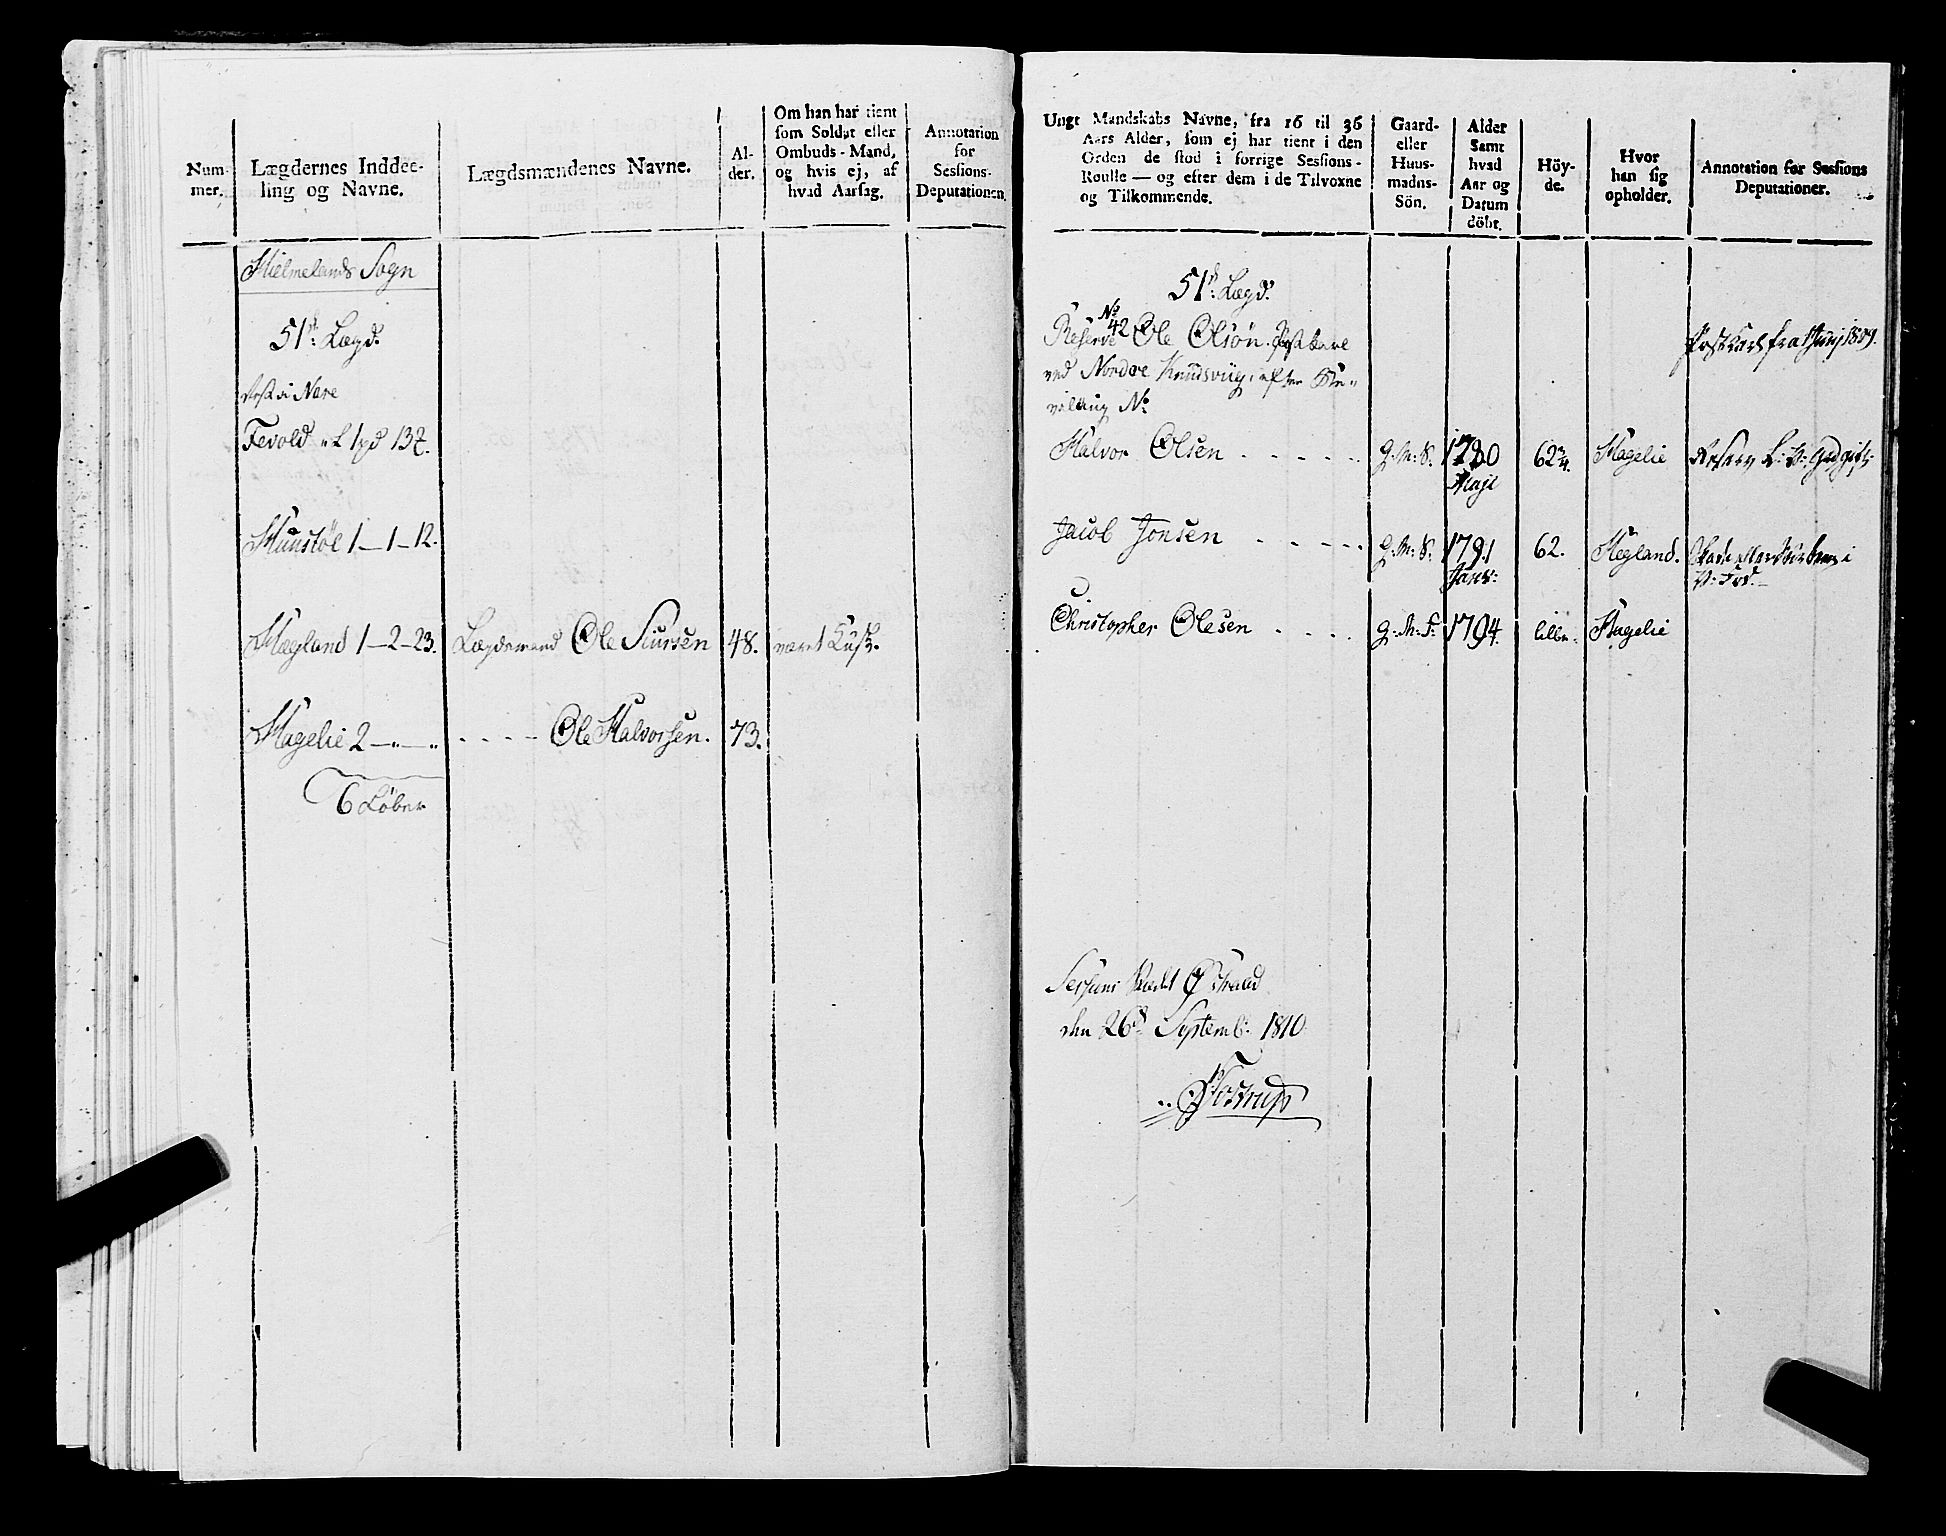 Num-
mer.
Lægdernes Inddee-
ling og Navne.
Lægdsmændenes Navne.
Al-
der.
Om han har tient
som Soldat eller
Ombuds-Mand,
og hvis ej, af
hvad Aarsag.
Annotation
for
Sessions-
Deputationen.
Hielmelands Sogn
51de Lægd.
Fevold
Hunstøl 1–1–12.
Hægland 1–2–23. Lægdsmand Ole Siursen 48. været
Hagelie 2 –„–„ Ole Halvorsen. 73.
6 Løber
Ungt Mandskabs Navne, fra 16 til 36
Aars Alder, som ej har tient i den
Orden de stod i forrige Sessions-
Roulle — og efter dem i de Tilvoxne
og Tilkommende.
Gaard-
eller
Huus-
mands-
Sön.
Alder
Samt
hvad
Aar og
Datum
döbt.
Höy-
de.
Hvor
han sig
opholder.
Annotation for Sessions
Deputationer.
51de Lægd.
No
Reserve 42 Ole Olson. Postkarl Postkarl fra Junj 1809.
ved Nordre Knudsviig, efter
No
Halvor Olsen G:M:S. 1780 62 3/4. Hagelie
Maji
Jacob Jonsen G:M:S. 1791 62. Hegland.
Janv:
Christopher Olesen G:M:S: 1794 lille. Hagelie
Sessions
den 26de Septemb: 1810